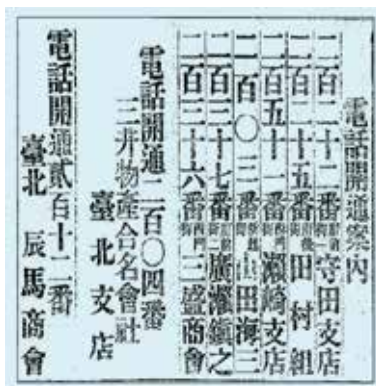 電話開通案內
二百二十二番 守田支店
二百二十五番 田村組
二百五十一番 瀨崎支店
二百〇三番 田海三
二百三十七番 廣瀨鎮之
二百三十六番 西門街 三盛商會
電話開通二百〇四番
三井物產合名會社
臺北支店
電話開通貳百十二番
臺北 辰馬商會